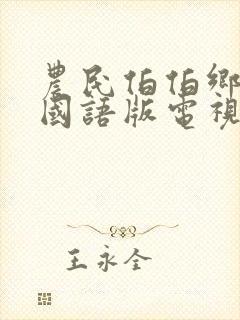 農民伯伯鄉
國語版電視
王永全